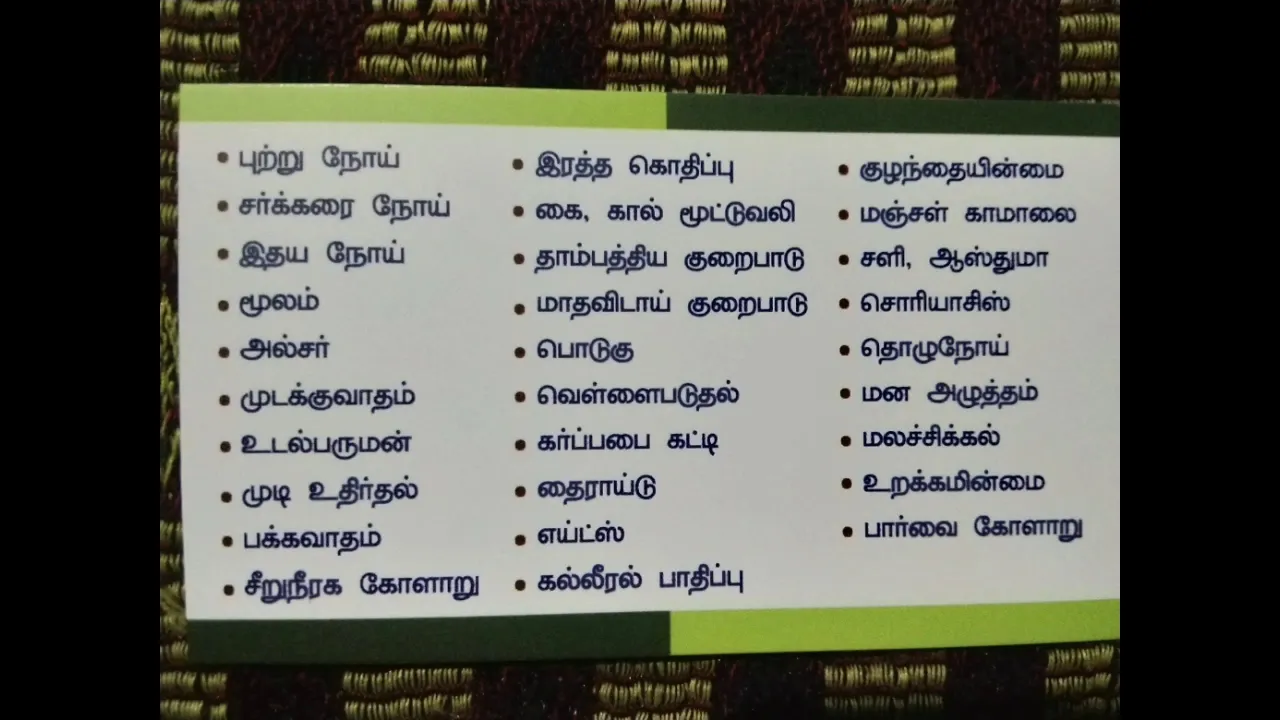 • புற்று நோய்
• சர்க்கரை நோய்
• இதய நோய்
• மூலம்
• அல்சர்
• முடக்குவாதம்
• உடல்பருமன்
• முடி உதிர்தல்
• பக்கவாதம்
• சீறுநீரக கோளாறு
• இரத்த கொதிப்பு
• கை, கால் மூட்டுவலி
• தாம்பத்திய குறைபாடு
• மாதவிடாய் குறைபாடு
• பொடுகு
• வெள்ளைபடுதல்
• கர்ப்பபை கட்டி
• தைராய்டு
• எய்ட்ஸ்
• கல்லீரல் பாதிப்பு
• குழந்தையின்மை
• மஞ்சள் காமாலை
• சளி, ஆஸ்துமா
• சொரியாசிஸ்
• தொழுநோய்
• மன அழுத்தம்
• மலச்சிக்கல்
• உறக்கமின்மை
• பார்வை கோளாறு